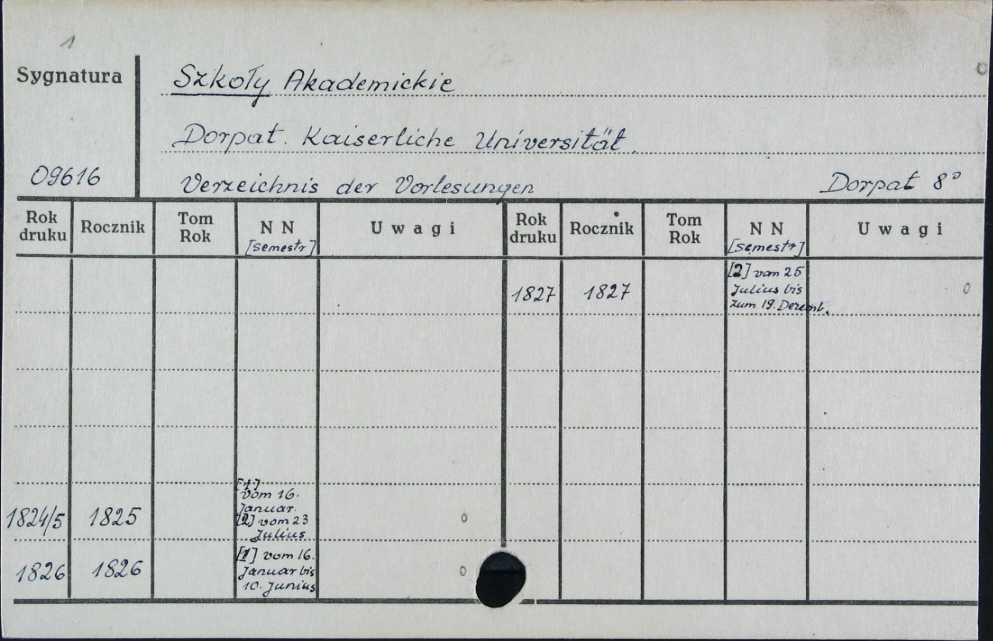 1
Sygnatura
Szkoły Akademickie
Dorpat. Kaiserliche Universität.
09616
Verzeichnis der Vorlesungen
Dorpat 8°
Rok druku
Rocznik
Tom Rok
N N
[semestr]
Uwagi
Rok druku
Rocznik
Tom Rok
N N
[semestr]
Uwagi
1827
1827
[2] vom 25
Julius bis
zum 19. Dezemb.
0
1824/5
1825
[1]
vom 16.
Januar.
[2] vom 23
Julius
0
1826
1826
[1] vom 16.
Januar bis
10. Junius
0